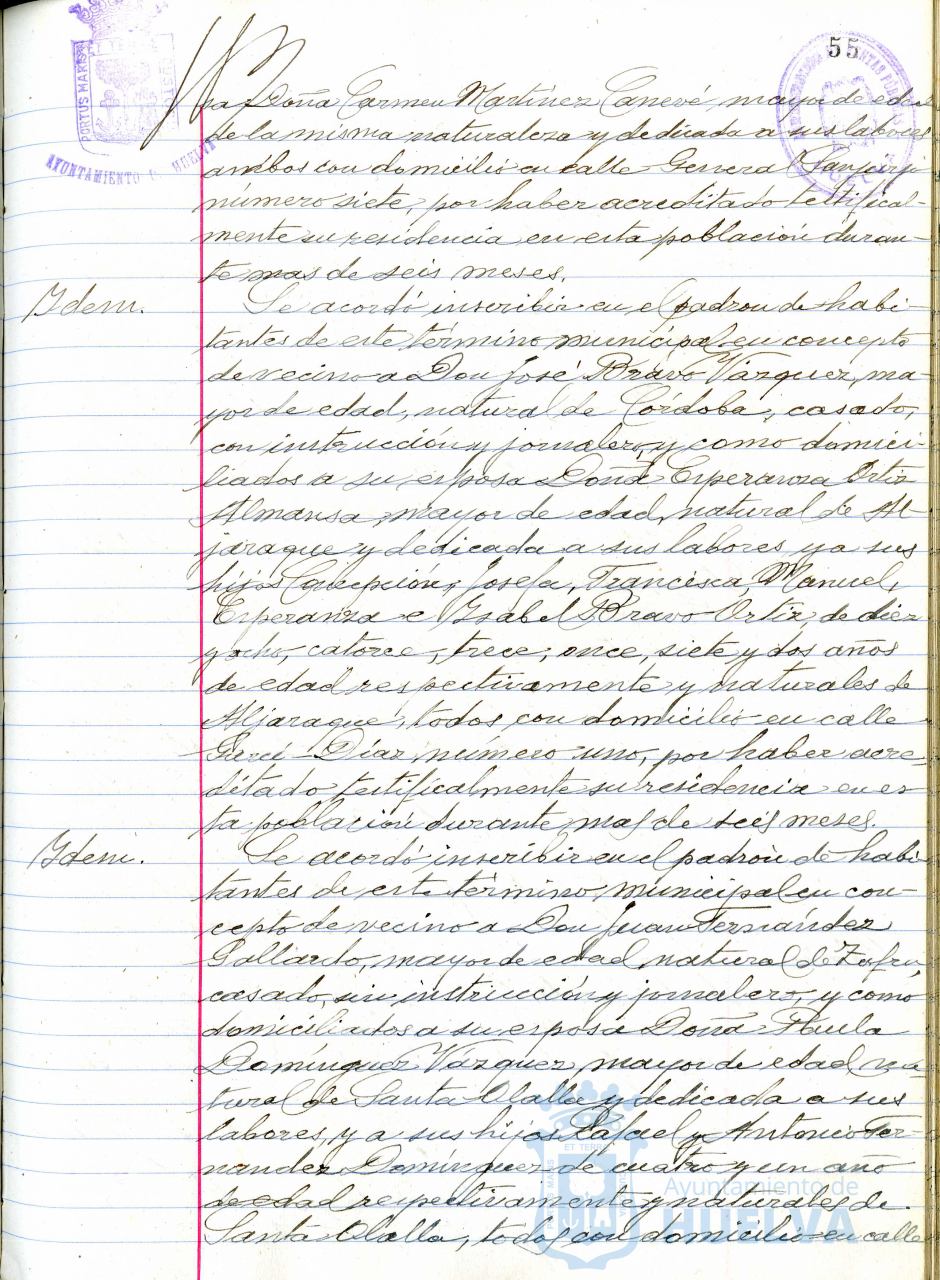 55
PORTUS MARIS
ET TERRÆ
CUSTODIA
AYUNTAMIENTO HUELVA
sa Doña Carmen Martínez Canevé, mayor de edad
de la misma naturaleza y dedicada a sus labores
ambos con domicilio en calle General
número siete, por haber acreditado testifical-
mente su residencia en esta población duran-
te mas de seis meses.
Idem.
Se acordó inscribir en el padron de habi-
tantes de este término municipal en concepto
de vecino a Don José Bravo Vázquez, ma-
yor de edad, natural de Córdoba, casado,
con instrucción y jornalero, y como domici-
liados a su esposa Doña Esperanza Ortiz
Almansa, mayor de edad, natural de Al-
jaraque y dedicada a sus labores y a sus
hijos Concepción, Josefa, Francisca, Manuel,
Esperanza e Ysabel Bravo Ortiz, de diez
y ocho, catorce, trece, once, siete y dos años
de edad respectivamente y naturales de
Aljaraque, todos con domicilio en calle
Garci-Díaz, número uno, por haber acre-
ditado testificalmente su residencia en es-
ta población durante mas de seis meses.
Idem.
Se acordó inscribir en el padrón de habi-
tantes de este término municipal en con-
cepto de vecino a Don Juan Fernández
Gallardo, mayor de edad, natural de Zafra,
casado, sin instrucción y jornalero, y como
domiciliados a su esposa Doña Paula
Domínguez Vázquez, mayor de edad na-
tural de Santa Olalla y dedicada a sus
labores, y a sus hijos Rafael y Antonio Fer-
nández Domínguez de cuatro y un año
de edad respectivamente y naturales de
Santa Olalla, todos con domicilio en calle
Ayuntamiento de
HUELVA